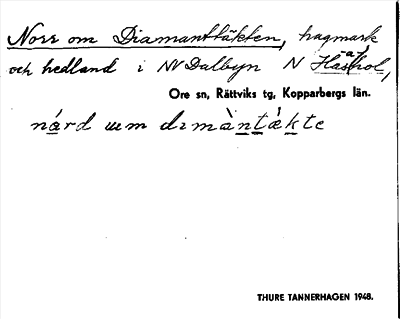 Norr om Diamanttäkten, hagmark
och hedland i NV Dalbyn N
Ore sn, Rättviks tg, Kopparbergs län.
nárd um dımàntǽkte
THURE TANNERHAGEN 1948.